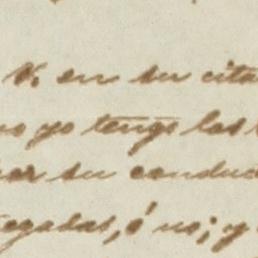 V. en su cita
no yo tengo las
ar su conduc
egadas, ó no; y